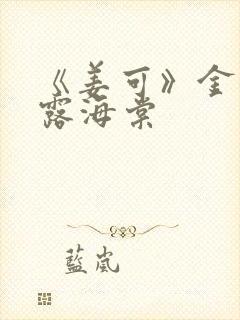 《姜可》金
露海棠
藍嵐